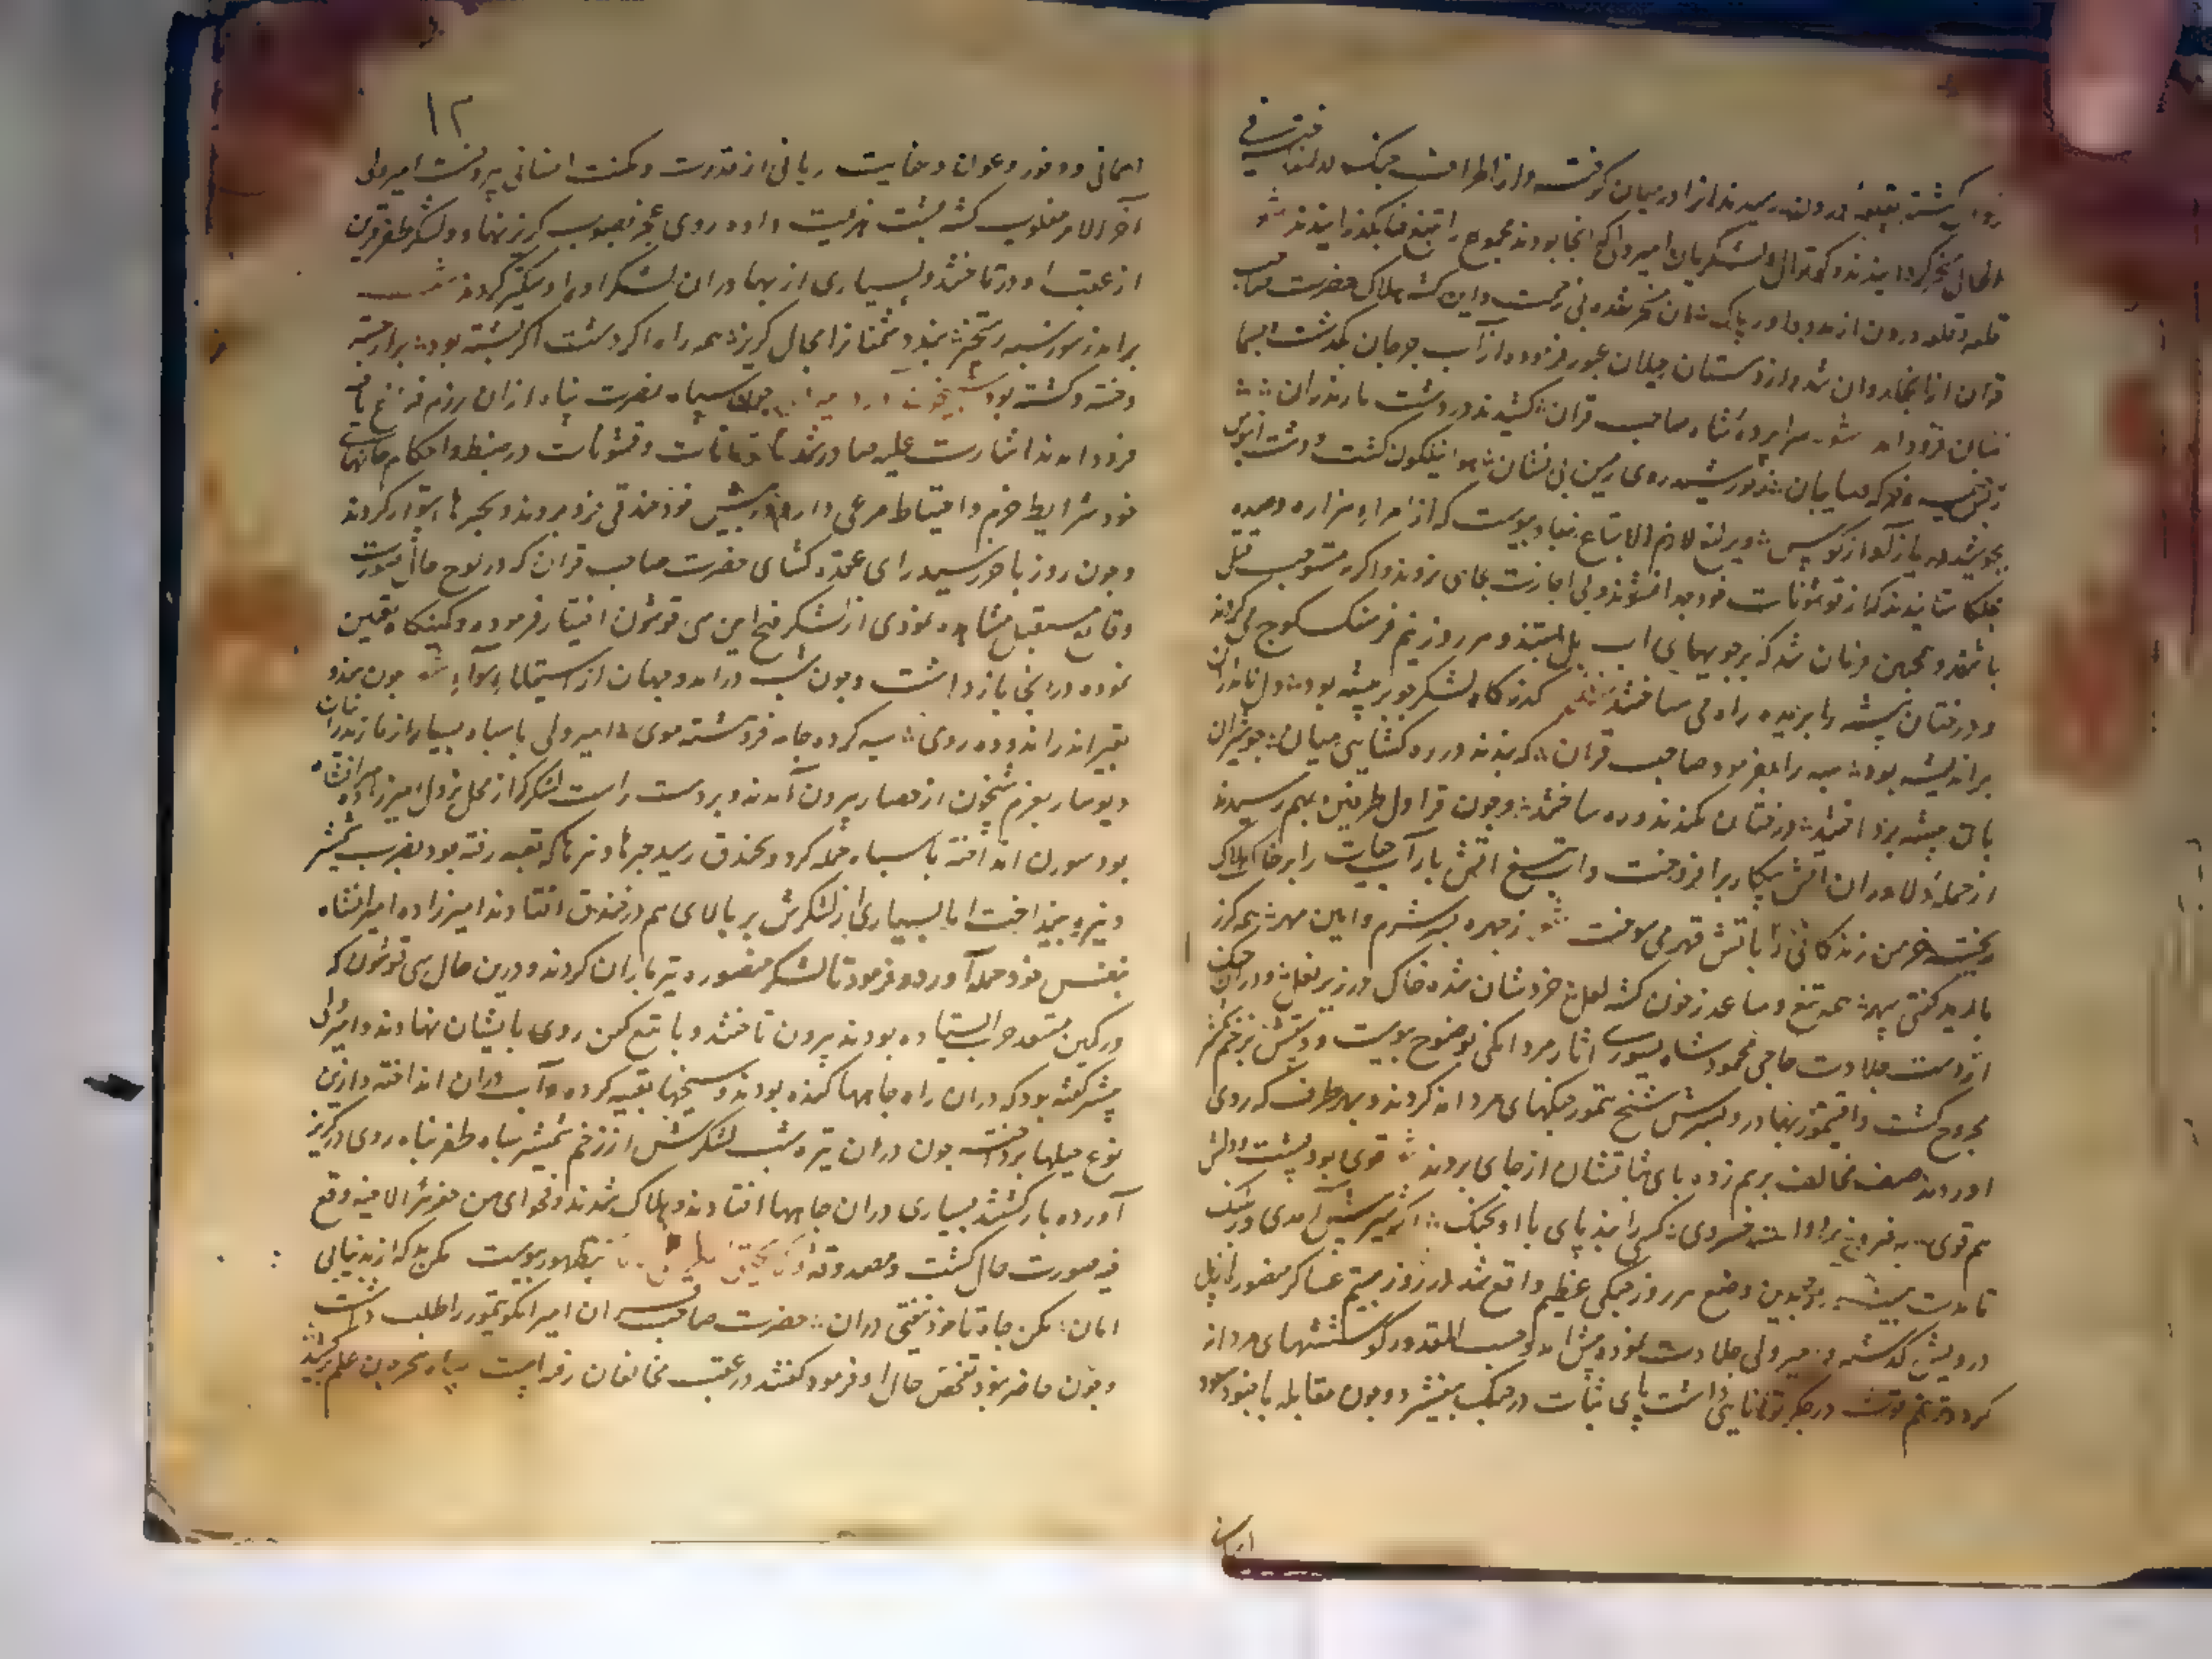 روان گشته بقلعهٔ درون رسیدند انرا در میان گرفته و از اطراف جنگ در انداخته فی
الحال مسخر گردانیدند و کوتوال و لشکریان امیر ولی که انجا بودند مجموع را بتیغ فنا بگذرانیدند
قلعه درون از مدد داور پاک شان مسخر شده بی زحمت و این گشته هلاک حضرت صاحب
قران از انجا روان شد و از دهستان جیلان عبور فرموده از آب جرجان بگذشت
شابان فرود امد سراپرده شاه صاحب قران کشیدند در دشت مازندران
ز بس خیمه و خرکه سایبان روی زمین بی نشان هوا نیلگون گشت و دشت
بجوشید دریا ز آواز کوس و یرلیغ لازم الاتباع بنفاد پیوست که از امراء هزاره و صده
خلکا ستانیدند که از قوشونات خود جدا نشوند و بی اجازت بجای نروند و اگر نه مستوجب قتل
باشند و همچنین فرمان شد که بر جویهای اب پل بستند و هر روز نیم فرسنگ کوچ می کردند
و درختان بیشه را بریده راه می ساختند گذرگاه لشکر چو بر بیشه بود دل نامداران
بر اندیشه بود همه را بفرمود صاحب قران که بندند در ره گشایی میان چو شیران
بان بیشه پرداختند درختان بکندند و ره ساختند و چون قراول طرفین بهم رسیدند
از حمله دلاوران اتش پیکار برافروخت و آب تیغ اتش بار آب حیات را بر خاک هلاک
ریخت خرمن زندگانی را باتش قهر می سوخت ز چهره بشد شرم و ایین مهر همه گرز
بارید گفتی سپهر همه تیغ و ساعد ز خون گشته لعل خروشان شده خاک در زیر نعل و دران جنگ
از دست جلادت حاجی محمود شاه یسوری اثار مردانگی بوضوح پیوست و دستش بزخم تیر
مجروح گشت و ایتمور بهادر و پسرش شیخ تمور جنگهای مردانه کردند و بهر طرف که روی
اوردند صف مخالف برهم زده پای ثباتشان از جای بردند قوی بود پشت و دلش
هم قوی به فیروزی کسی را نبد پای با او بجنگ اگر شیر پیش آمدی در
تا مدت بیست روز بدین وضع هر روز جنگی عظیم واقع شد روز بیستم عساکر منصور از پل
درویش گذشته و امیر ولی جلادت نموده پیش امد و حسب المقدور کوششهای مردانه
کرد و تا نیم قوت در جگر و توانایی داشت پای ثبات در جنگ بیفشرد و چون مقابله با جنود
اسمانی
۱۲
اسمانی و وفور و عوان و عنایت ربانی از قدرت و مکنت انسانی بیرونست امیر ولی
آخر الامر مغلوب گشته پشت هزیمت داده روی عجز بصوب گریز نهاد و لشکر ظفر قرین
از عقب او در تاختند و بسیاری از بهادران لشکر او را دستگیر کردند
بر امد ز مور سبه رستخیز نبد دشمنانرا مجال گریز همه راه اگر دشت اگر پشته بود
خسته و کشته بود چون سپاه نصرت پناه ازان رزم فراغ یافته
فرود امدند اشارت علیه صادر شد تا تومانات و قشونات در ضبط و احکام جایهای
خود شرایط حزم و احتیاط مرعی دارند و در پیش خود خندقی فرو بردند و بچپرها استوار کردند
و چون روز با خورشید رای عقده گشای حضرت صاحب قران که در لوح حال صورت
وقایع مستقبل مشاهده نمودی از لشکر فتح ایین سی قوشون اختیار فرموده و کمینگاه تعیین
نموده در انجا بازداشت و چون شب در امد و جهان از استیلاء سواد چون هندو
بقیر اندر اندوده روی سیه کرده جامه فروهشته موی امیر ولی با سپاه بسیار از مازندران
و پوسار بعزم شبخون از حصار بیرون آمدند و بر دست راست لشکر که از محل نزول امیرزاده میرانشاه
بود سورن انداخته با سپاه حمله کرد و بخندق رسید چپرها و تنرها که تعبیه رفته بود بضرب شمشیر
و نیزه بینداخت اما بسیاری از لشکرش بر بالای هم در خندق افتادند امیرزاده امیرانشاه
بنفس خود حمله آورد و فرمود تا لشکر منصوره تیرباران کردند و درین حال سی قوشون که
در کمین مستعد حرب ایستاده بودند بیرون تاختند و با تیغ کین روی بایشان نهادند و امیر ولی
پیشتر گفته بود که دران راه چاهها کنده بودند و سیخها تعبیه کرده و آب دران انداخته و ازین
نوع حیلها پرداخته چون دران تیره شب لشکرش از زخم شمشیر سپاه ظفر پناه روی در گریز
آورده باز گشتند بسیاری دران چاهها افتادند و هلاک شدند و فحوای من حفر بئرا لاخیه وقع
فیه صورت حال گشت و مصدوقه ولا یحیق المکر بظهور پیوست مکن بد که از بد نیابی
امان مکن چاه تا خود نیفتی دران حضرت صاحب قران امیر ایکو تیمور را طلب داشت
و چون حاضر نبود تفحص حال او فرمود گفتند در عقب مخالفان رفته است سپاه سحر چون علم برکشید